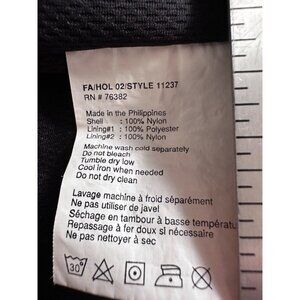 FA/HOL 02/STYLE 11237
RN # 76382
Made in the Philippines
Shell : 100% Nylon
Lining#1 : 100% Polyester
Lining#2 : 100% Nylon
Machine wash cold separately
Do not bleach
Tumble dry low
Cool iron when needed
Do not dry clean
Lavage machine à froid séparément
Ne pas utiliser de javel
Séchage en tambour à basse températu
Repassage à fer doux si nécessaire
Ne pas nettoyer à sec
30°